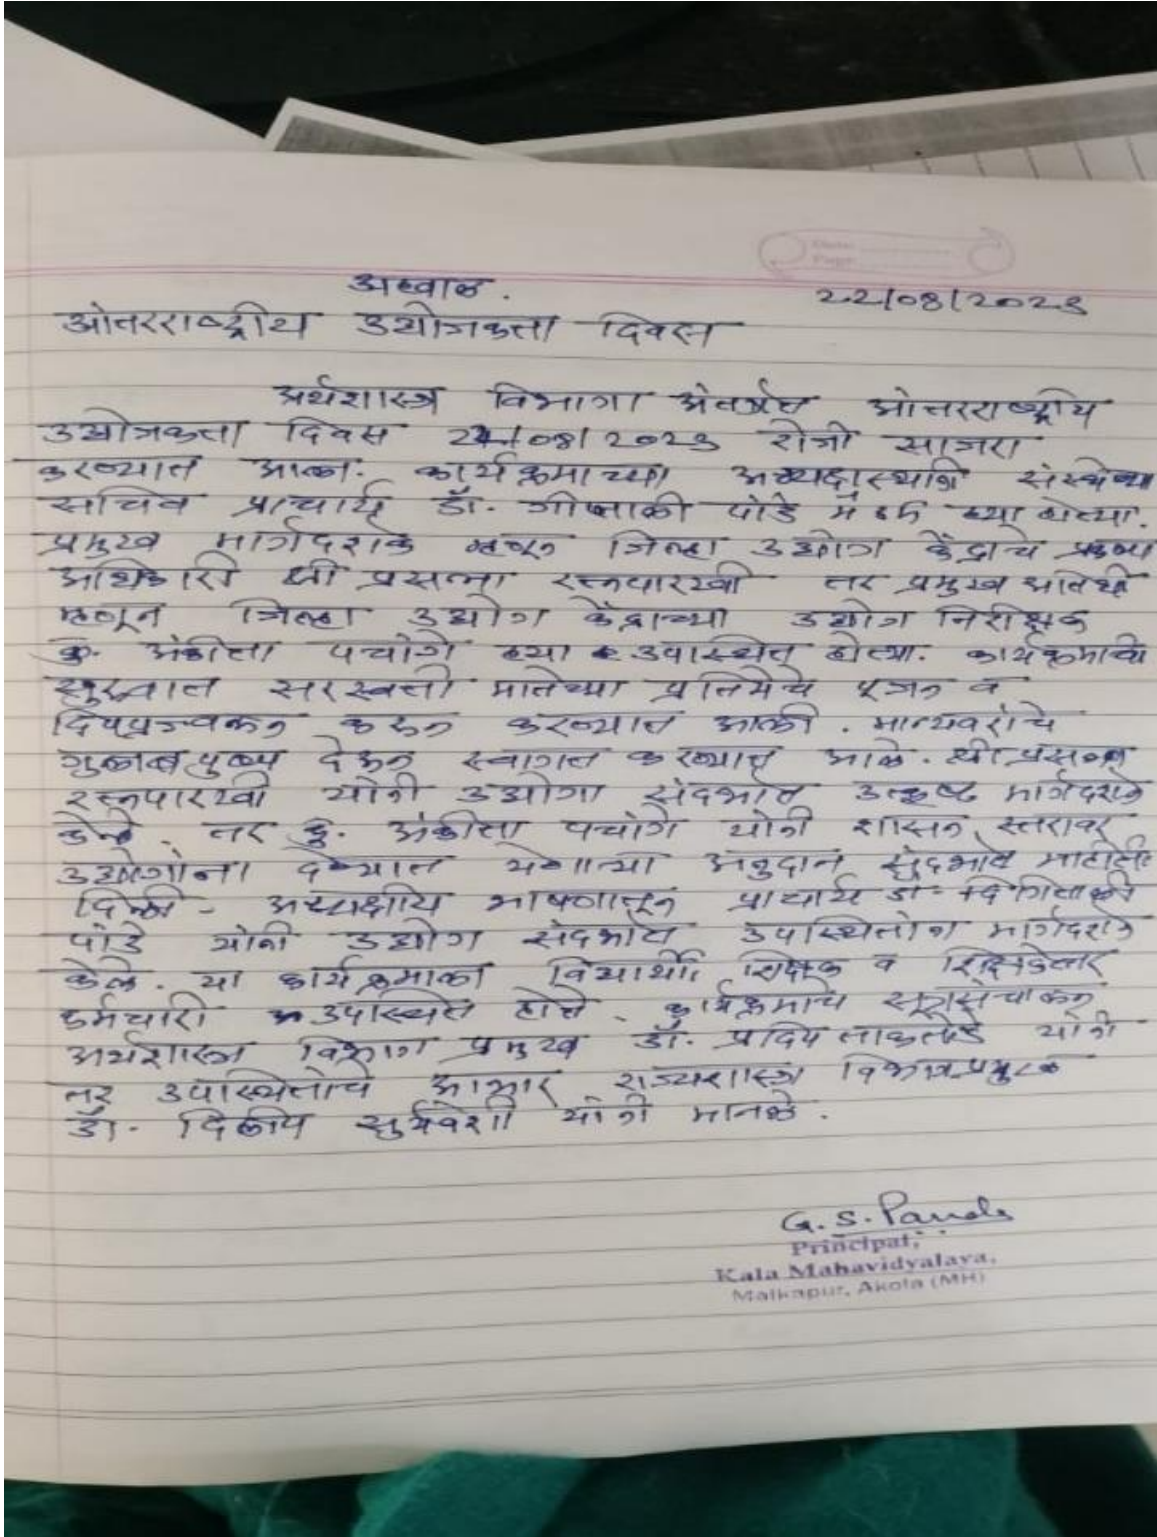 Date
Page
अहवाल.
22/08/2023
आंतरराष्ट्रीय उद्योजकता दिवस
अर्थशास्त्र विभागा अंतर्गत आंतरराष्ट्रीय
उद्योजकता दिवस 21/08/2023 रोजी साजरा
करण्यात आला. कार्यक्रमाच्या अध्यक्षस्थानी संस्थेच्या
सचिव प्राचार्य डॉ. गीताली पांडे मॅडम ह्या होत्या.
प्रमुख मार्गदर्शक म्हणून जिल्हा उद्योग केंद्राचे
अधिकारी श्री प्रसन्ना रत्नपारखी तर प्रमुख अतिथी
म्हणून जिल्हा उद्योग केंद्राच्या उद्योग निरीक्षक
कु. अंकीता पचांगे ह्या उपस्थित होत्या. कार्यक्रमाची
सुरुवात सरस्वती मातेच्या प्रतिमेचे पूजन व
दिपप्रज्वलन करून करण्यात आली. मान्यवरांचे
गुलाबपुष्प देऊन स्वागत करण्यात आले. श्री प्रसन्न
रत्नपारखी यांनी उद्योगा संदर्भात उत्कृष्ट मार्गदर्शन
केले. तर कु. अंकीता पचांगे यांनी शासन स्तरावर
उद्योगांना देण्यात येणाऱ्या अनुदान संदर्भात माहिती
दिली. अध्यक्षीय भाषणातून प्राचार्य डॉ
पांडे यांनी उद्योग संदर्भात उपस्थितांना मार्गदर्शन
केले. या कार्यक्रमाला विद्यार्थी शिक्षक व शिक्षकेत्तर
कर्मचारी उपस्थित होते. कार्यक्रमाचे सूत्रसंचालन
अर्थशास्त्र विभाग प्रमुख डॉ. प्रदिप ताकतोडे यांनी
तर उपस्थितांचे आभार राज्यशास्त्र विभागप्रमुख
डॉ. दिलीप सुर्यवंशी यांनी मानले.
G. S. Pande
Principal,
Kala Mahavidyalaya,
Malkapur, Akola (MH)